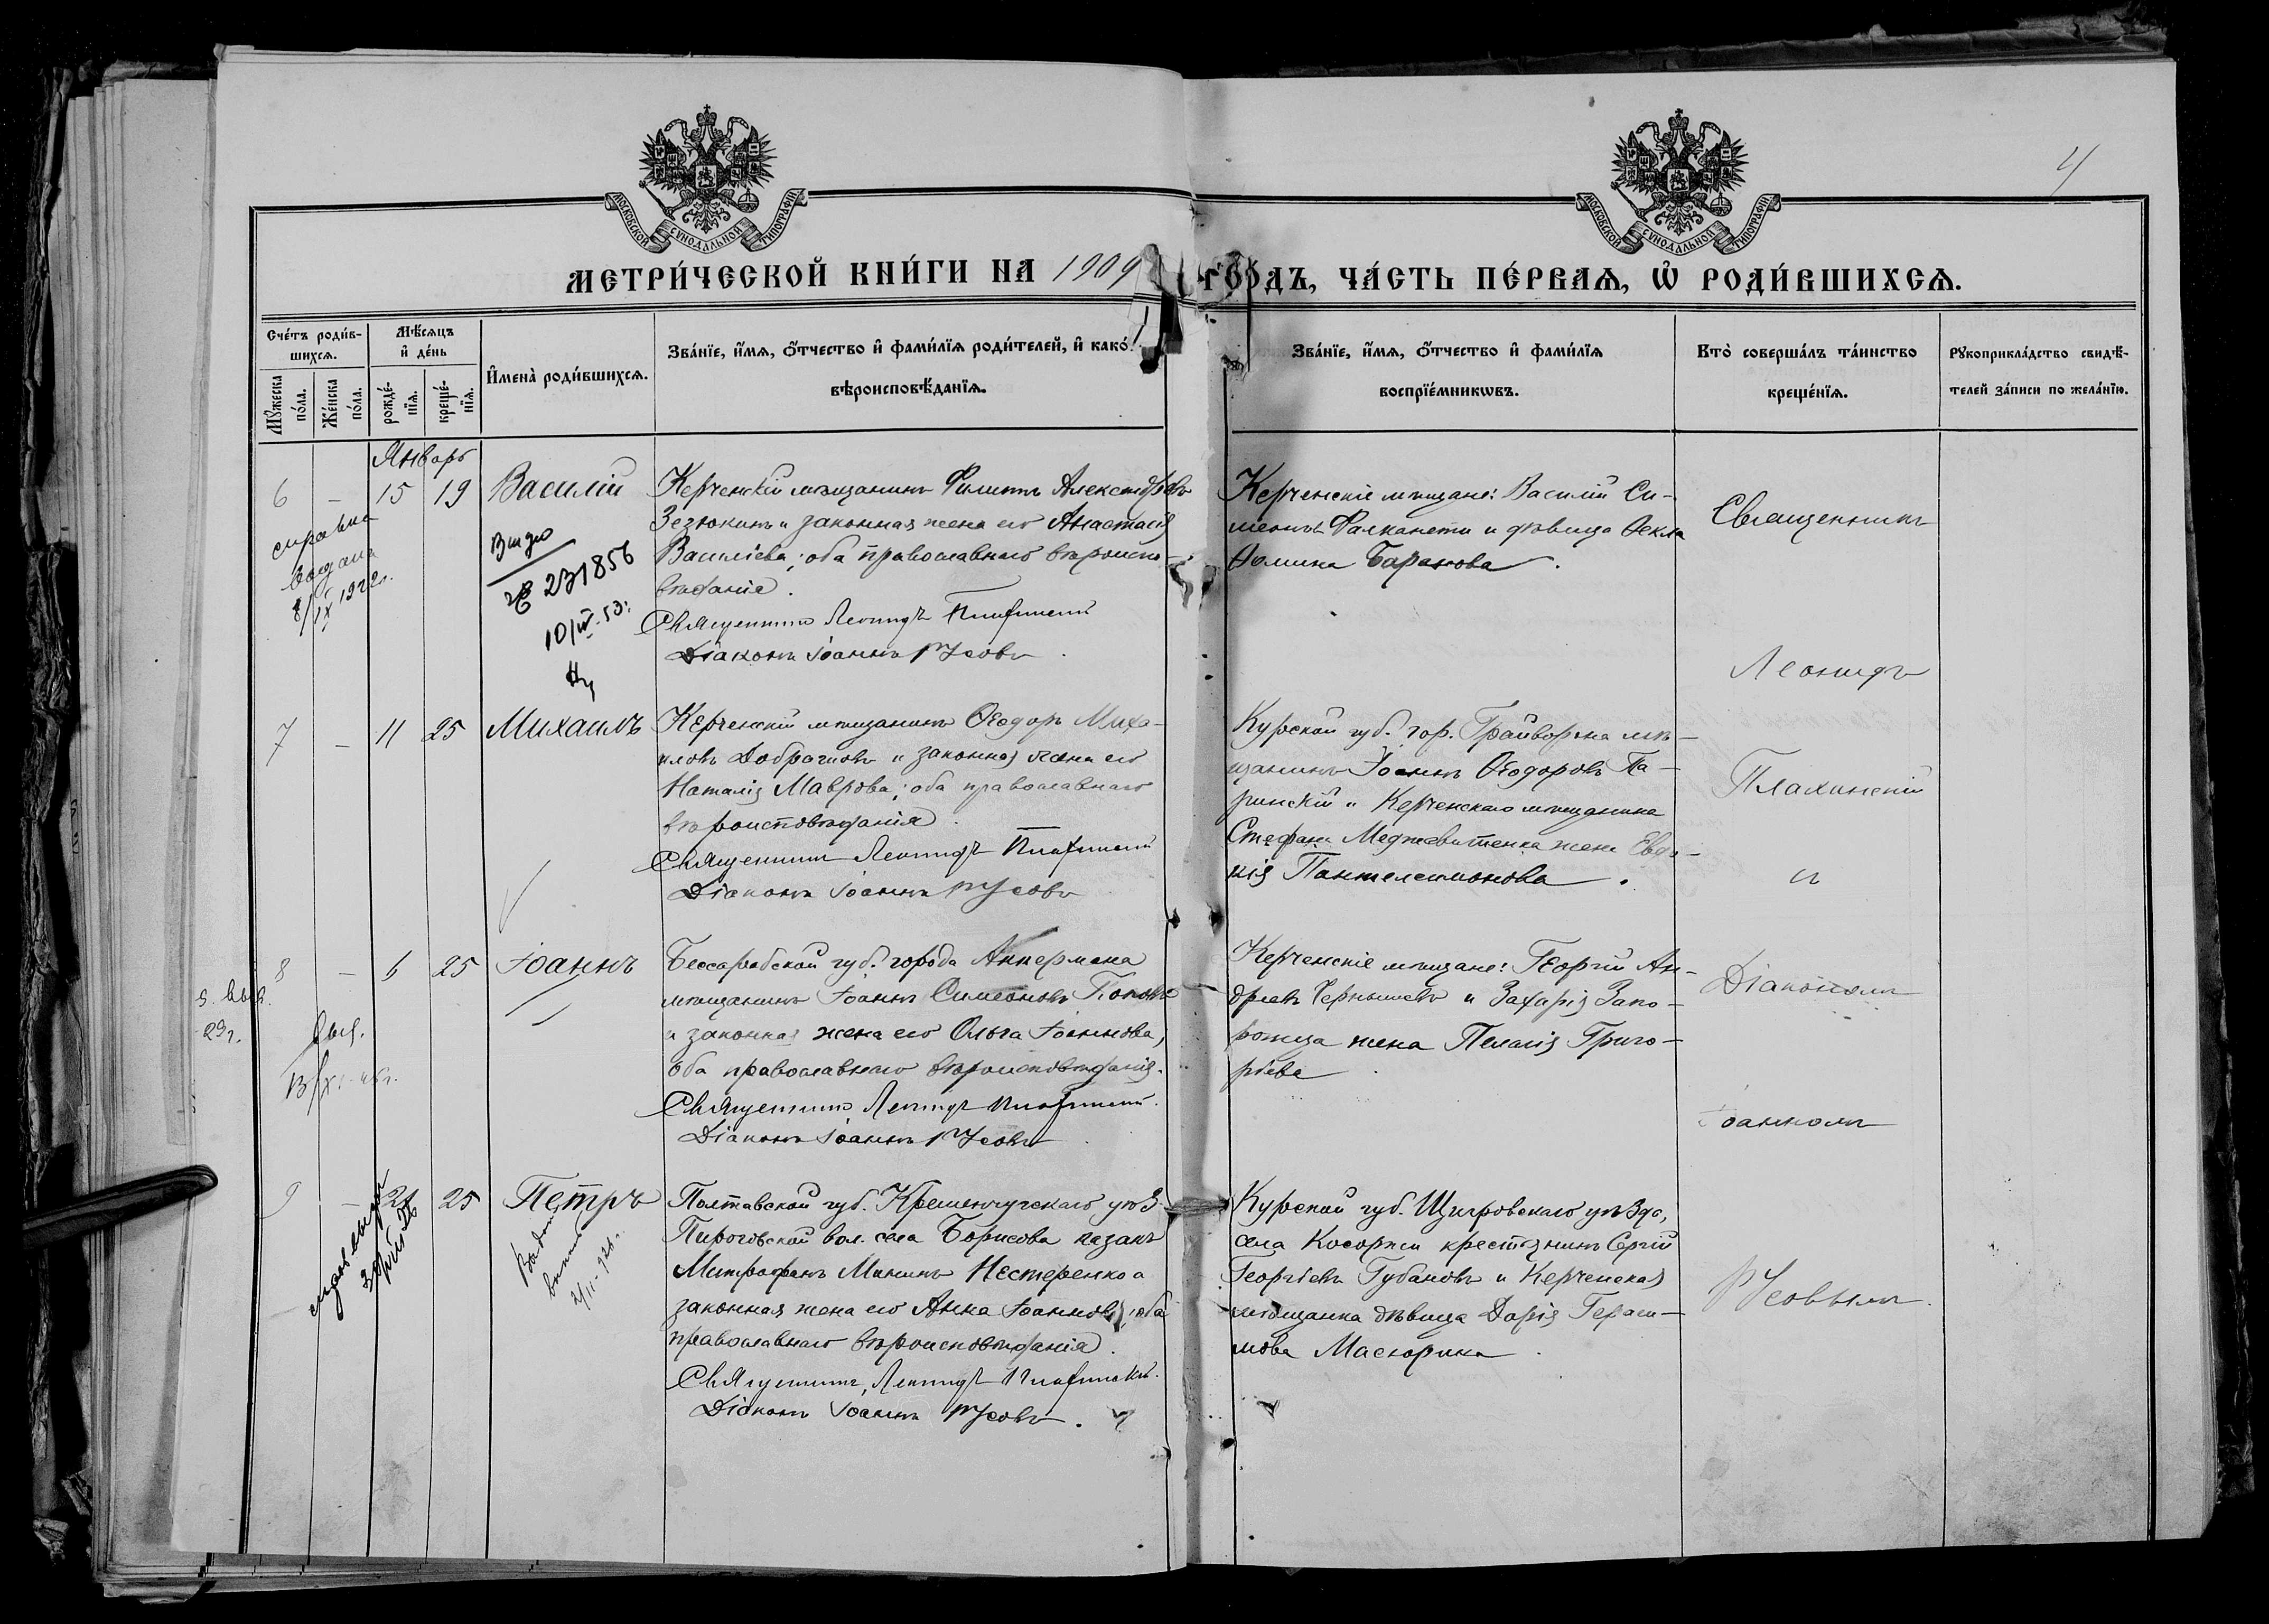 4
МОСКОВСКОЙ СѴНОДАЛЬНОЙ ТИПОГРАФІИ
МОСКОВСКОЙ СѴНОДАЛЬНОЙ ТИПОГРАФІИ
МЕТРИ́ЧЕСКОЙ КНИ́ГИ НА 1909 ГО́ДЪ, ЧА́СТЬ ПЕ́РВАѦ, Ѡ҆ РОДИ́ВШИХСѦ.
Сче́тъ роди́в-
шихсѧ.
Мꙋ́жеска по́ла.
Же́нска по́ла.
Мѣ́сѧцъ
и҆ де́нь
рожде́-
нїѧ.
креще́-
нїѧ.
И҆мена̀ роди́вшихсѧ.
Зва́нїе, и҆́мѧ, ѻ҆́тчество и҆ фами́лїѧ роди́телей, и҆ како́
вѣроисповѣ́данїѧ.
Зва́нїе, и҆́мѧ, ѻ҆́тчество и҆ фами́лїѧ
воспрїе́мникѡвъ.
Кто̀ соверша́лъ та́инство
креще́нїѧ.
Рꙋкоприкла́дство свидѣ́-
телей за́писи по жела́нїю.
Январь
6 - 15 19 Василій
справка
выдана
8/IX 1922г.
231856
10/IV-53г.
Керченскій мѣщанинъ Филиппъ Александровъ
Зезюкинъ и законная жена его Анастасія
Василіева; оба православнаго вѣроиспо-
вѣданіе.
Священникъ Леонидъ Плахинскій
Діаконъ Іоаннъ Русовъ
Керченскіе мѣщане: Василій Си-
меоновъ и дѣвица Ѳекла
Ѳомина Баранова.
Священникъ
Леонидъ
Плахинскій
съ
Діакономъ
Іоанномъ
Русовымъ
7 - 11 25 Михаилъ
Керченскій мѣщанинъ Ѳеодоръ Миха-
иловъ и законная жена его
Наталія Маврова; оба православнаго
вѣроисповѣданія.
Священникъ Леонидъ Плахинскій
Діаконъ Іоаннъ Русовъ
Курской губ. гор. Грайворона мѣ-
щанинъ Іоаннъ Ѳеодоровъ Па-
ринскій и Керченскаго мѣщанина
Стефана жена Евдо-
кія Пантелеимонова.
8 - 6 25 Іоаннъ
выд.
Бессарабской губ. города Аккермана
мѣщанинъ Іоаннъ Симеоновъ Поповъ
и законная жена его Ольга Іоаннова,
оба православнаго вѣроисповѣданія.
Священникъ Леонидъ Плахинскій.
Діаконъ Іоаннъ Русовъ
Керченскіе мѣщане: Георгій Ан-
дреевъ Чернышевъ и Захарія Запо-
рожца жена Пелагія Григо-
рьева
9 - 21 25 Петръ
Полтавской губ. Кременчугскаго уѣз.
Пироговской вол. села Борисова казакъ
Митрофанъ Нестеренко и
законная жена его Анна Іоаннова, оба
православнаго вѣроисповѣданія.
Священникъ Леонидъ Плахинскій.
Діаконъ Іоаннъ Русовъ.
Курской губ. Щигровскаго уѣзда,
села Косоржи крестьянинъ Сергій
Георгіевъ Губановъ и Керченская
мѣщанка дѣвица Дарія Гераси-
мова Масюрина.